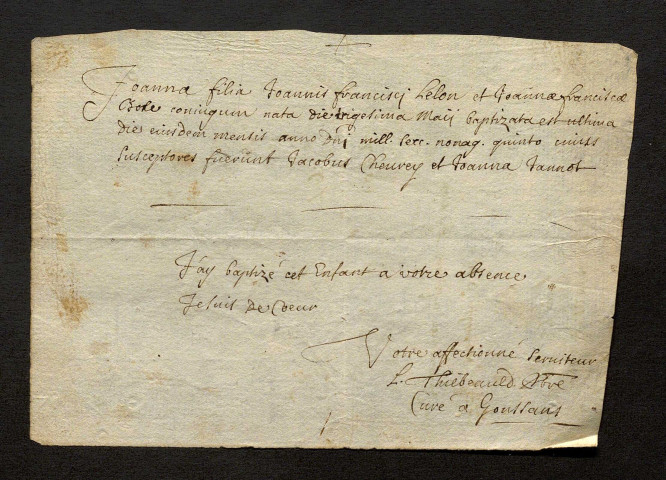 Joanna filia Joannis francisci Lelon et Joannæ franciscæ
Bole coniugum nata die vigesima Maii baptizata est ultima
die eiusdem mensis anno Dni mill. sexc. nonag. quinto cuius
susceptores fuerunt Jacobus Cheurey et Joanna Jannot
J'ay baptizé cet Enfant a votre absence
Je suis de Coeur
Votre affectionné serviteur
L. Thiebauld ptre
Curé a Goussans